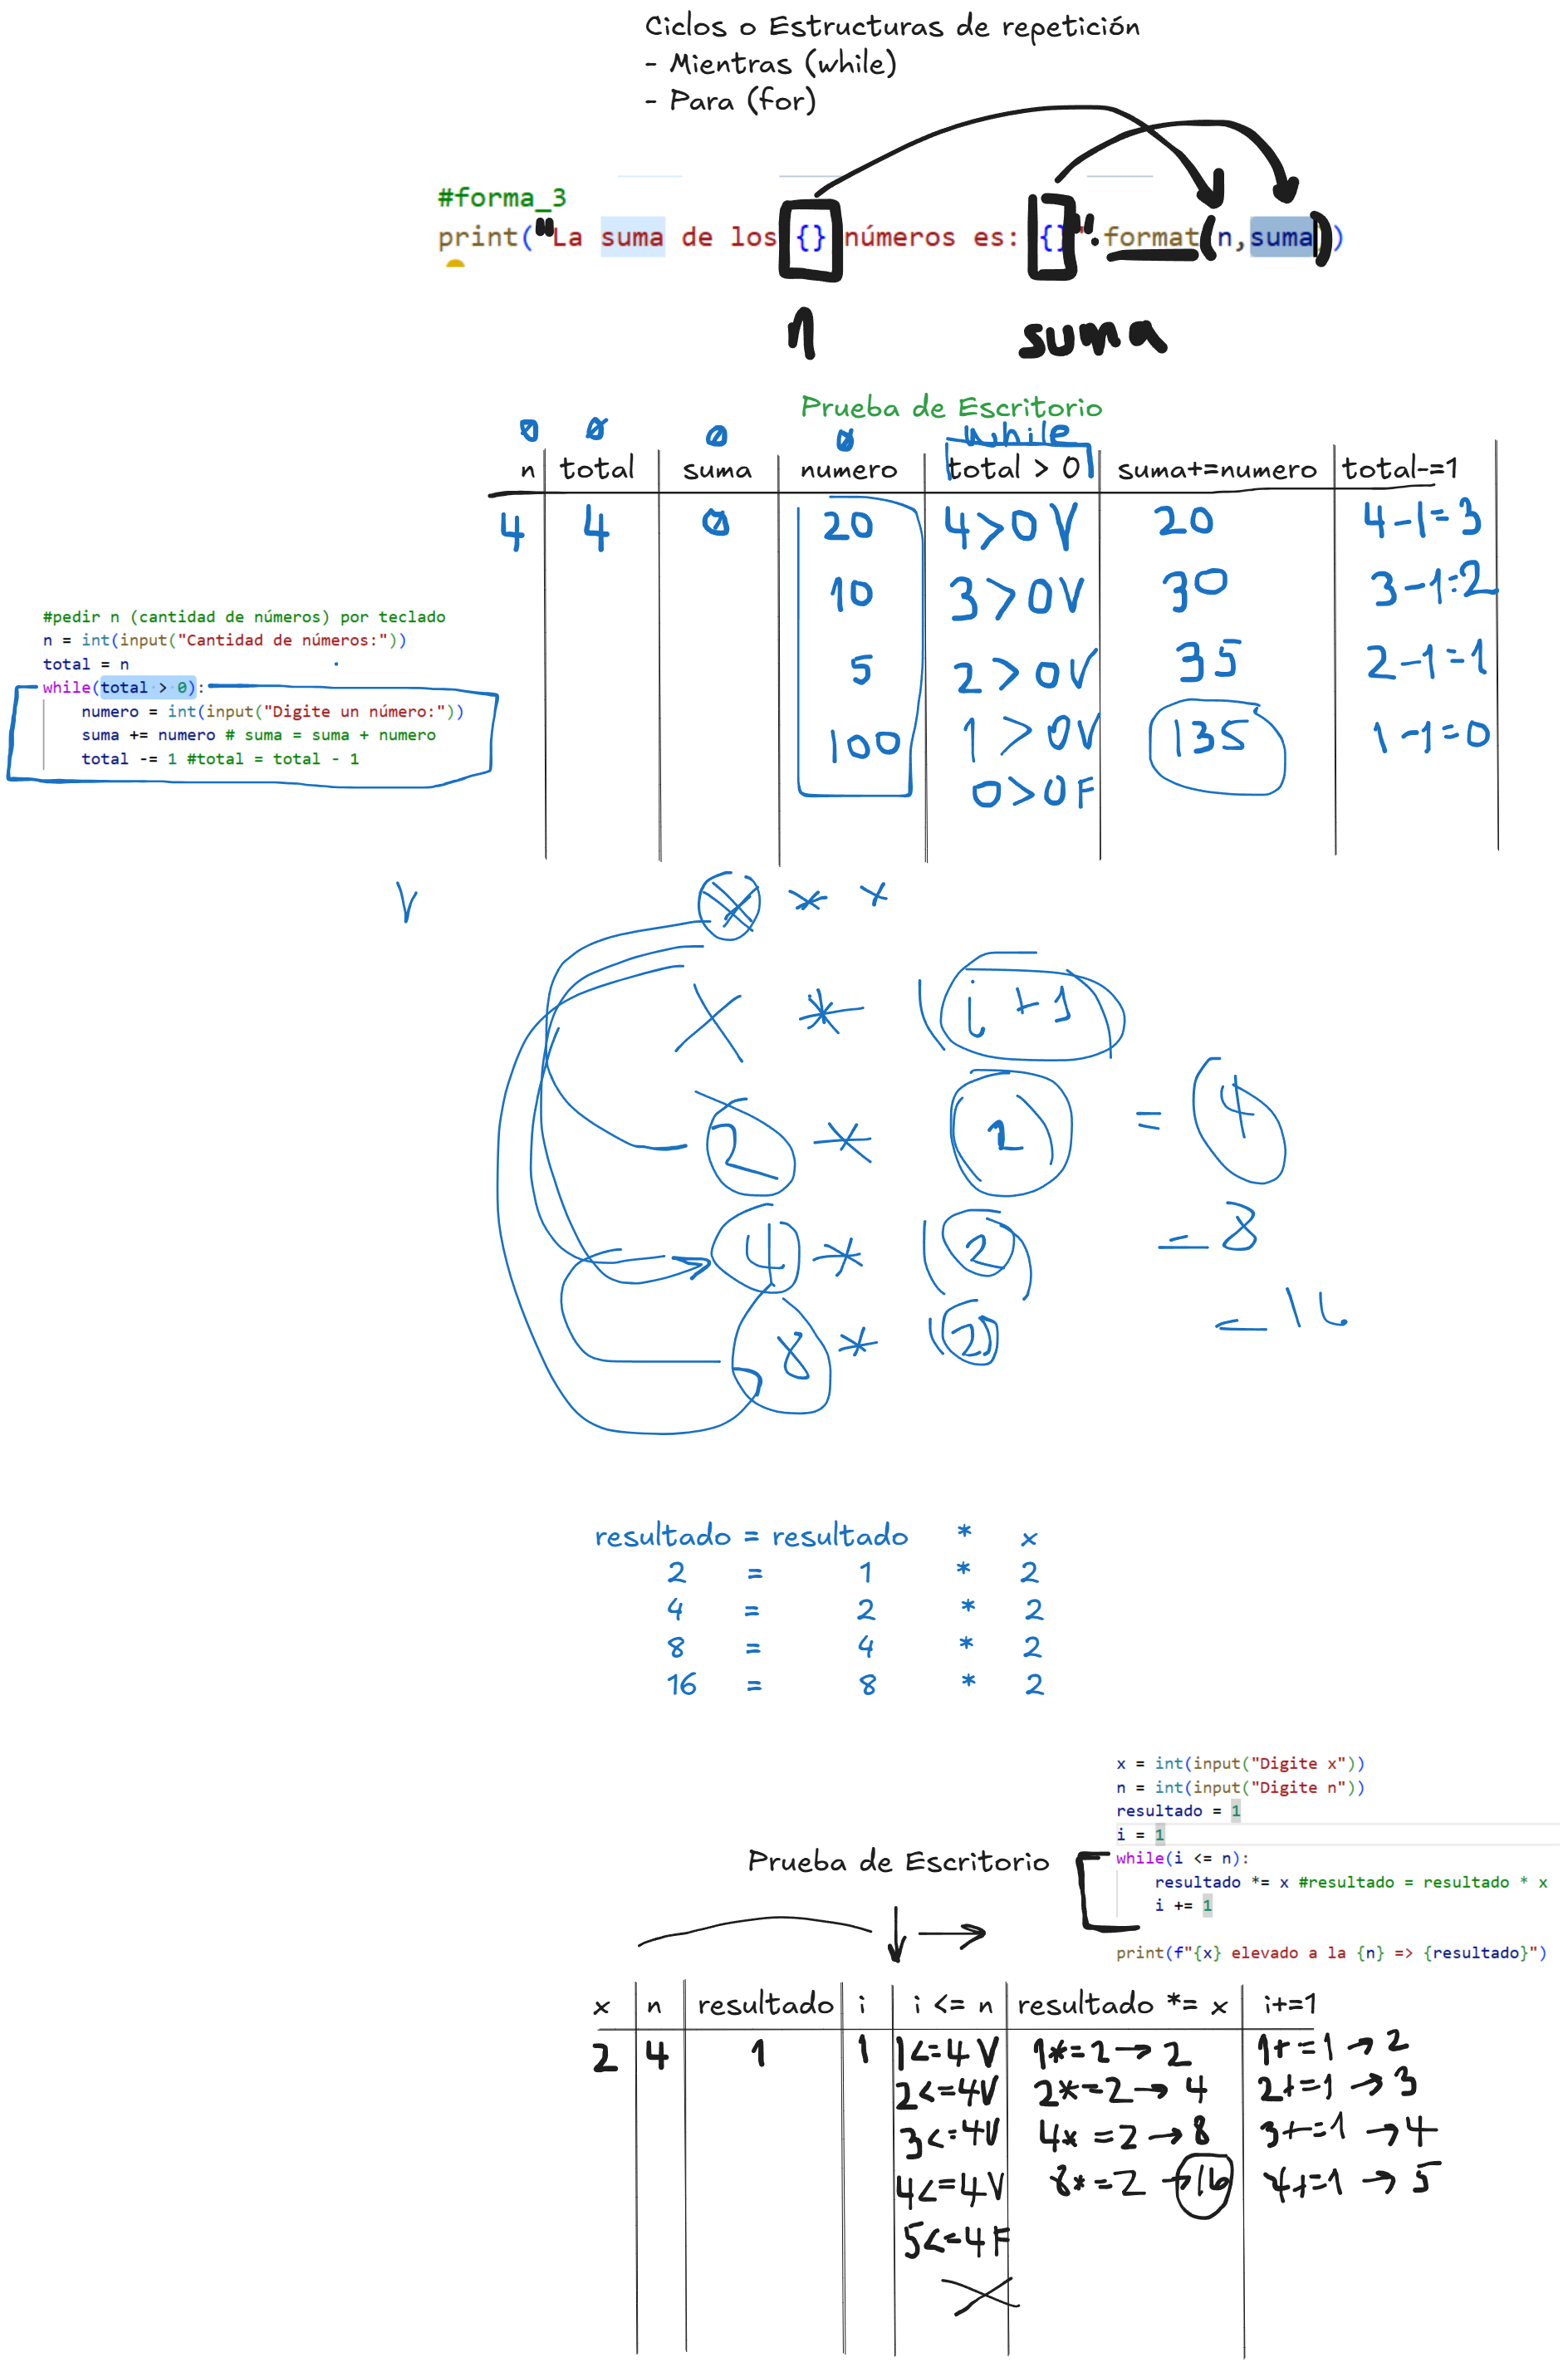 Ciclos o Estructuras de repetición
- Mientras (while)
- Para (for)
#forma_3
print("La suma de los {} números es: {}".format(n,suma))
n suma
Prueba de Escritorio
0 0 0 0 while
n total suma numero total > 0 suma+=numero total-=1
4 4 0 20 4>0 V 20 4-1=3
10 3>0V 30 3-1=2
5 2>0V 35 2-1=1
100 1>0V 135 1-1=0
0>0F
#pedir n (cantidad de números) por teclado
n = int(input("Cantidad de números:"))
total = n
while(total > 0):
numero = int(input("Digite un número:"))
suma += numero # suma = suma + numero
total -= 1 #total = total - 1
x * x
x * (i+1)
2 * (2) = 4
4 * (2) = 8
8 * (2) = 16
resultado = resultado * x
2 = 1 * 2
4 = 2 * 2
8 = 4 * 2
16 = 8 * 2
x = int(input("Digite x"))
n = int(input("Digite n"))
resultado = 1
i = 1
while(i <= n):
resultado *= x #resultado = resultado * x
i += 1
print(f"{x} elevado a la {n} => {resultado}")
Prueba de Escritorio
x n resultado i i <= n resultado *= x i+=1
2 4 1 1 1<=4 V 1*=2→2 1+=1→2
2<=4V 2*=2→4 2+=1→3
3<=4V 4*=2→8 3+=1→4
4<=4V 8*=2→16 4+=1→5
5<=4F